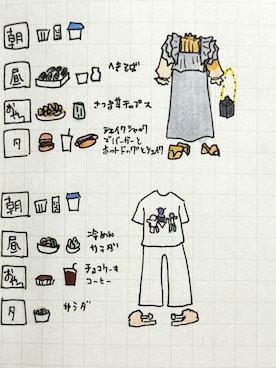 朝
昼
へぎそば
おやつ
さつま芋チップス
夕
シェイクシャック
でバーガーと
ホットドッグとシェイク
朝
昼
冷めん
サラダ
おやつ
チョコケーキ
コーヒー
夕
サラダ